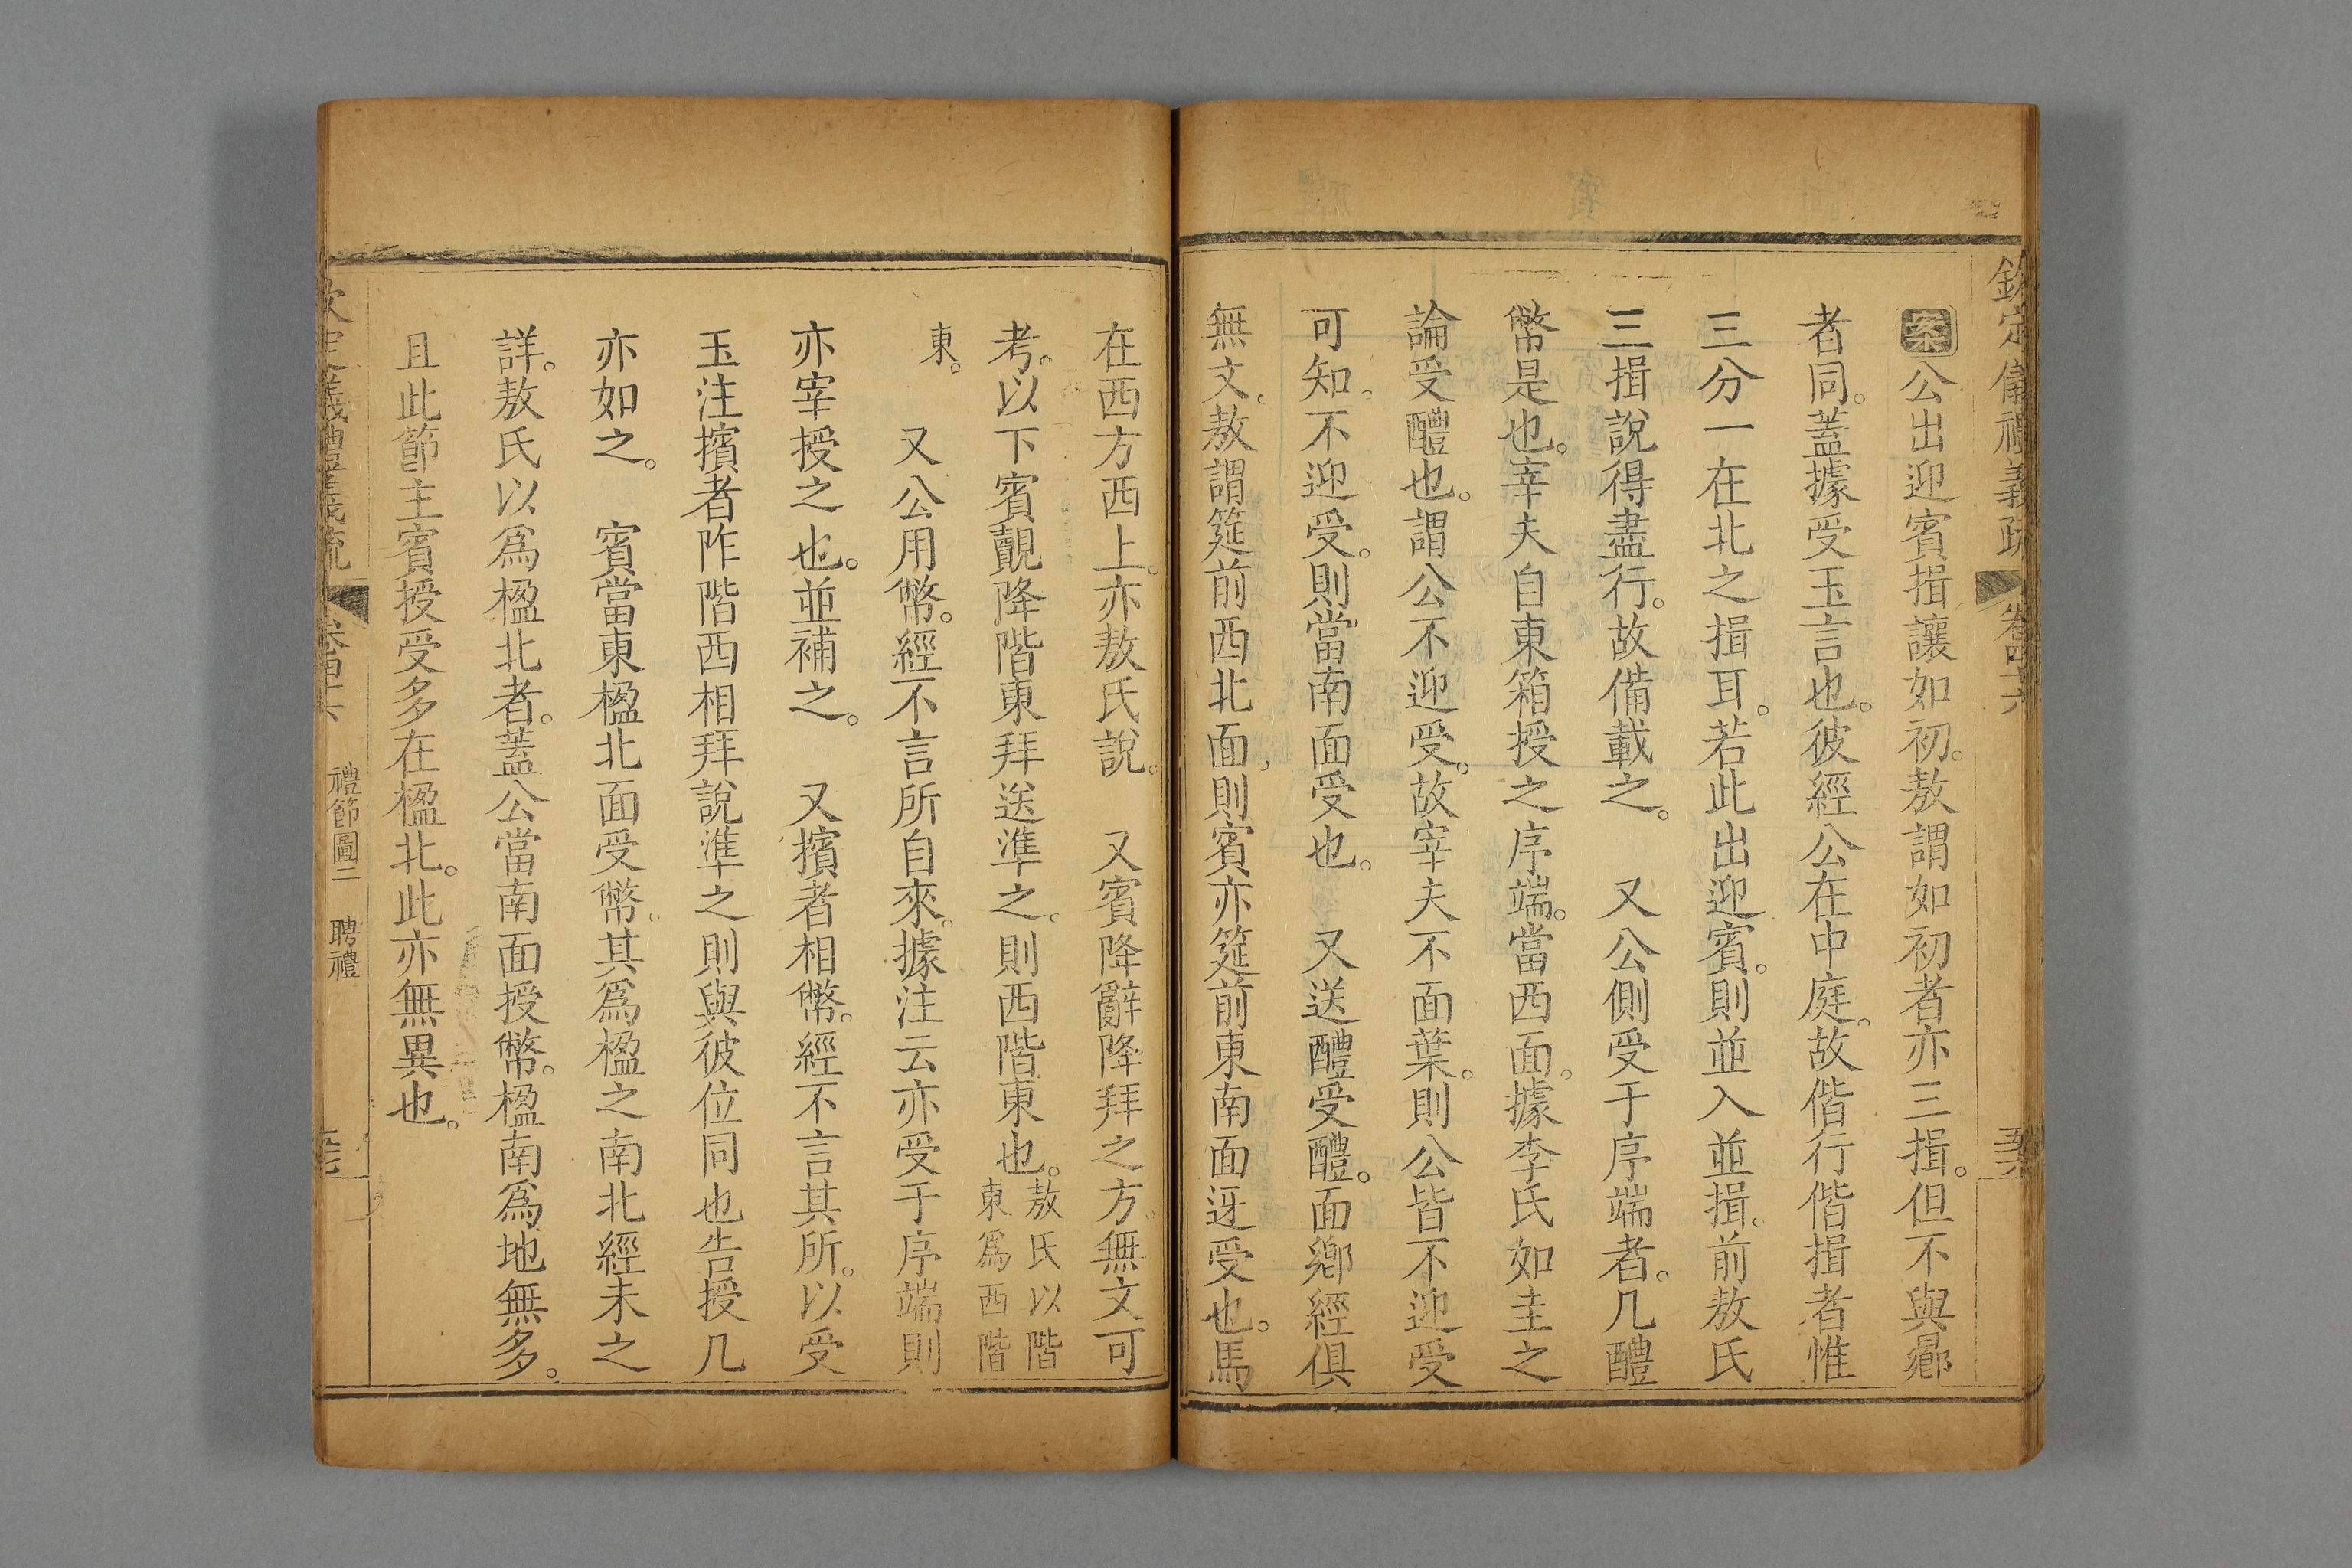 欽定儀禮義疏 卷四十六
案公出迎賓揖讓如初。敖謂如初者亦三揖。但不與鄉
者同。蓋據受玉言也。彼經公在中庭。故偕行偕揖者惟
三分一在北之揖耳。若此出迎賓。則並入並揖。前敖氏
三揖說得盡行。故備載之。　又公側受于序端者。几醴
幣是也。宰夫自東箱授之序端。當西面。據李氏如圭之
論受醴也。謂公不迎受。故宰夫不面葉。則公皆不迎受
可知。不迎受。則當南面受也。　又送醴受醴。面鄉經俱
無文。敖謂筵前西北面，則賓亦筵前東南面迓受也。馬
在西方西上。亦敖氏說。　又賓降辭降拜之方。無文可
考。以下賓覿降階東拜送準之。則西階東也。敖氏以階東為西階
東。　又公用幣。經不言所自來。據注云亦受于序端則
亦宰授之也。並補之。　又擯者相幣。經不言其所。以受
玉注擯者阼階西相拜說準之則與彼位同也告授几
亦如之。　賓當東楹北面受幣。其爲楹之南北經未之
詳。敖氏以爲楹北者。蓋公當南面授幣。楹南爲地無多。
且此節主賓授受多在楹北。此亦無異也。
欽定儀禮義疏 卷四十六 禮節圖二 聘禮